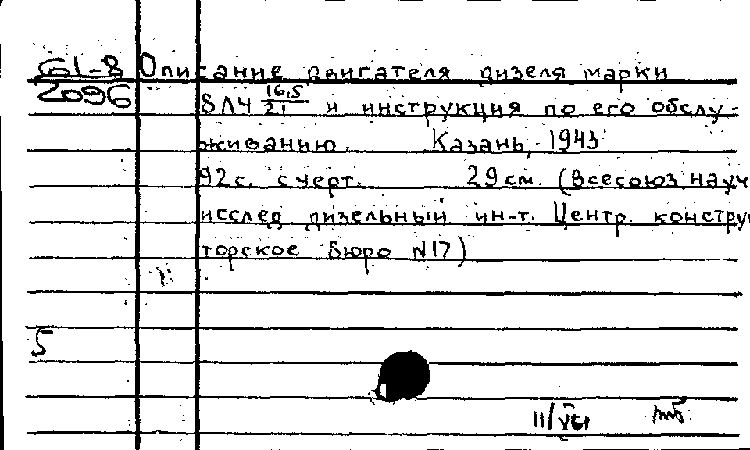 Г51-8 Описание двигателя дизеля марки
2096 8ЛЧ 16,5/21 и инструкция по его обслу-
живанию. Казань, 1943
92 с. с черт. 29 см. (Всесоюз науч
исслед дизельный ин-т. Центр. конструк
торское бюро N17)
5
11/VI